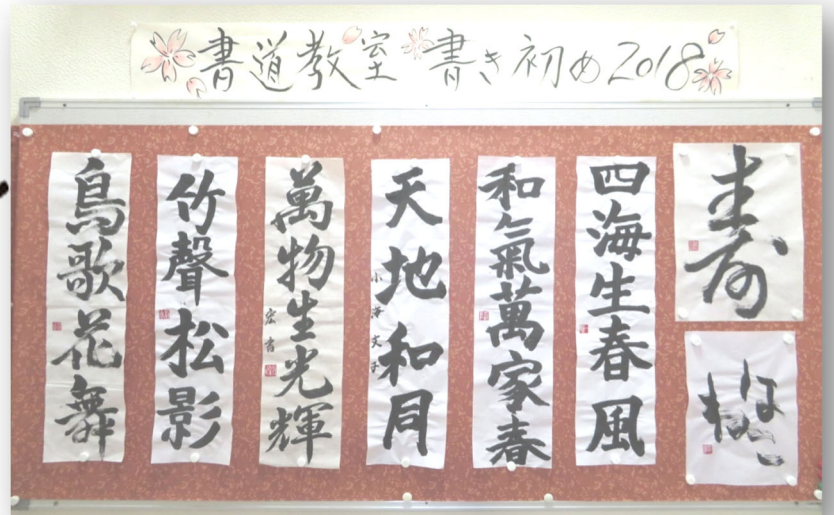 書道教室 書き初め2018
寿
四海生春風
和氣萬家春
天地和同
萬物生光輝
宏書
竹聲松影
鳥歌花舞